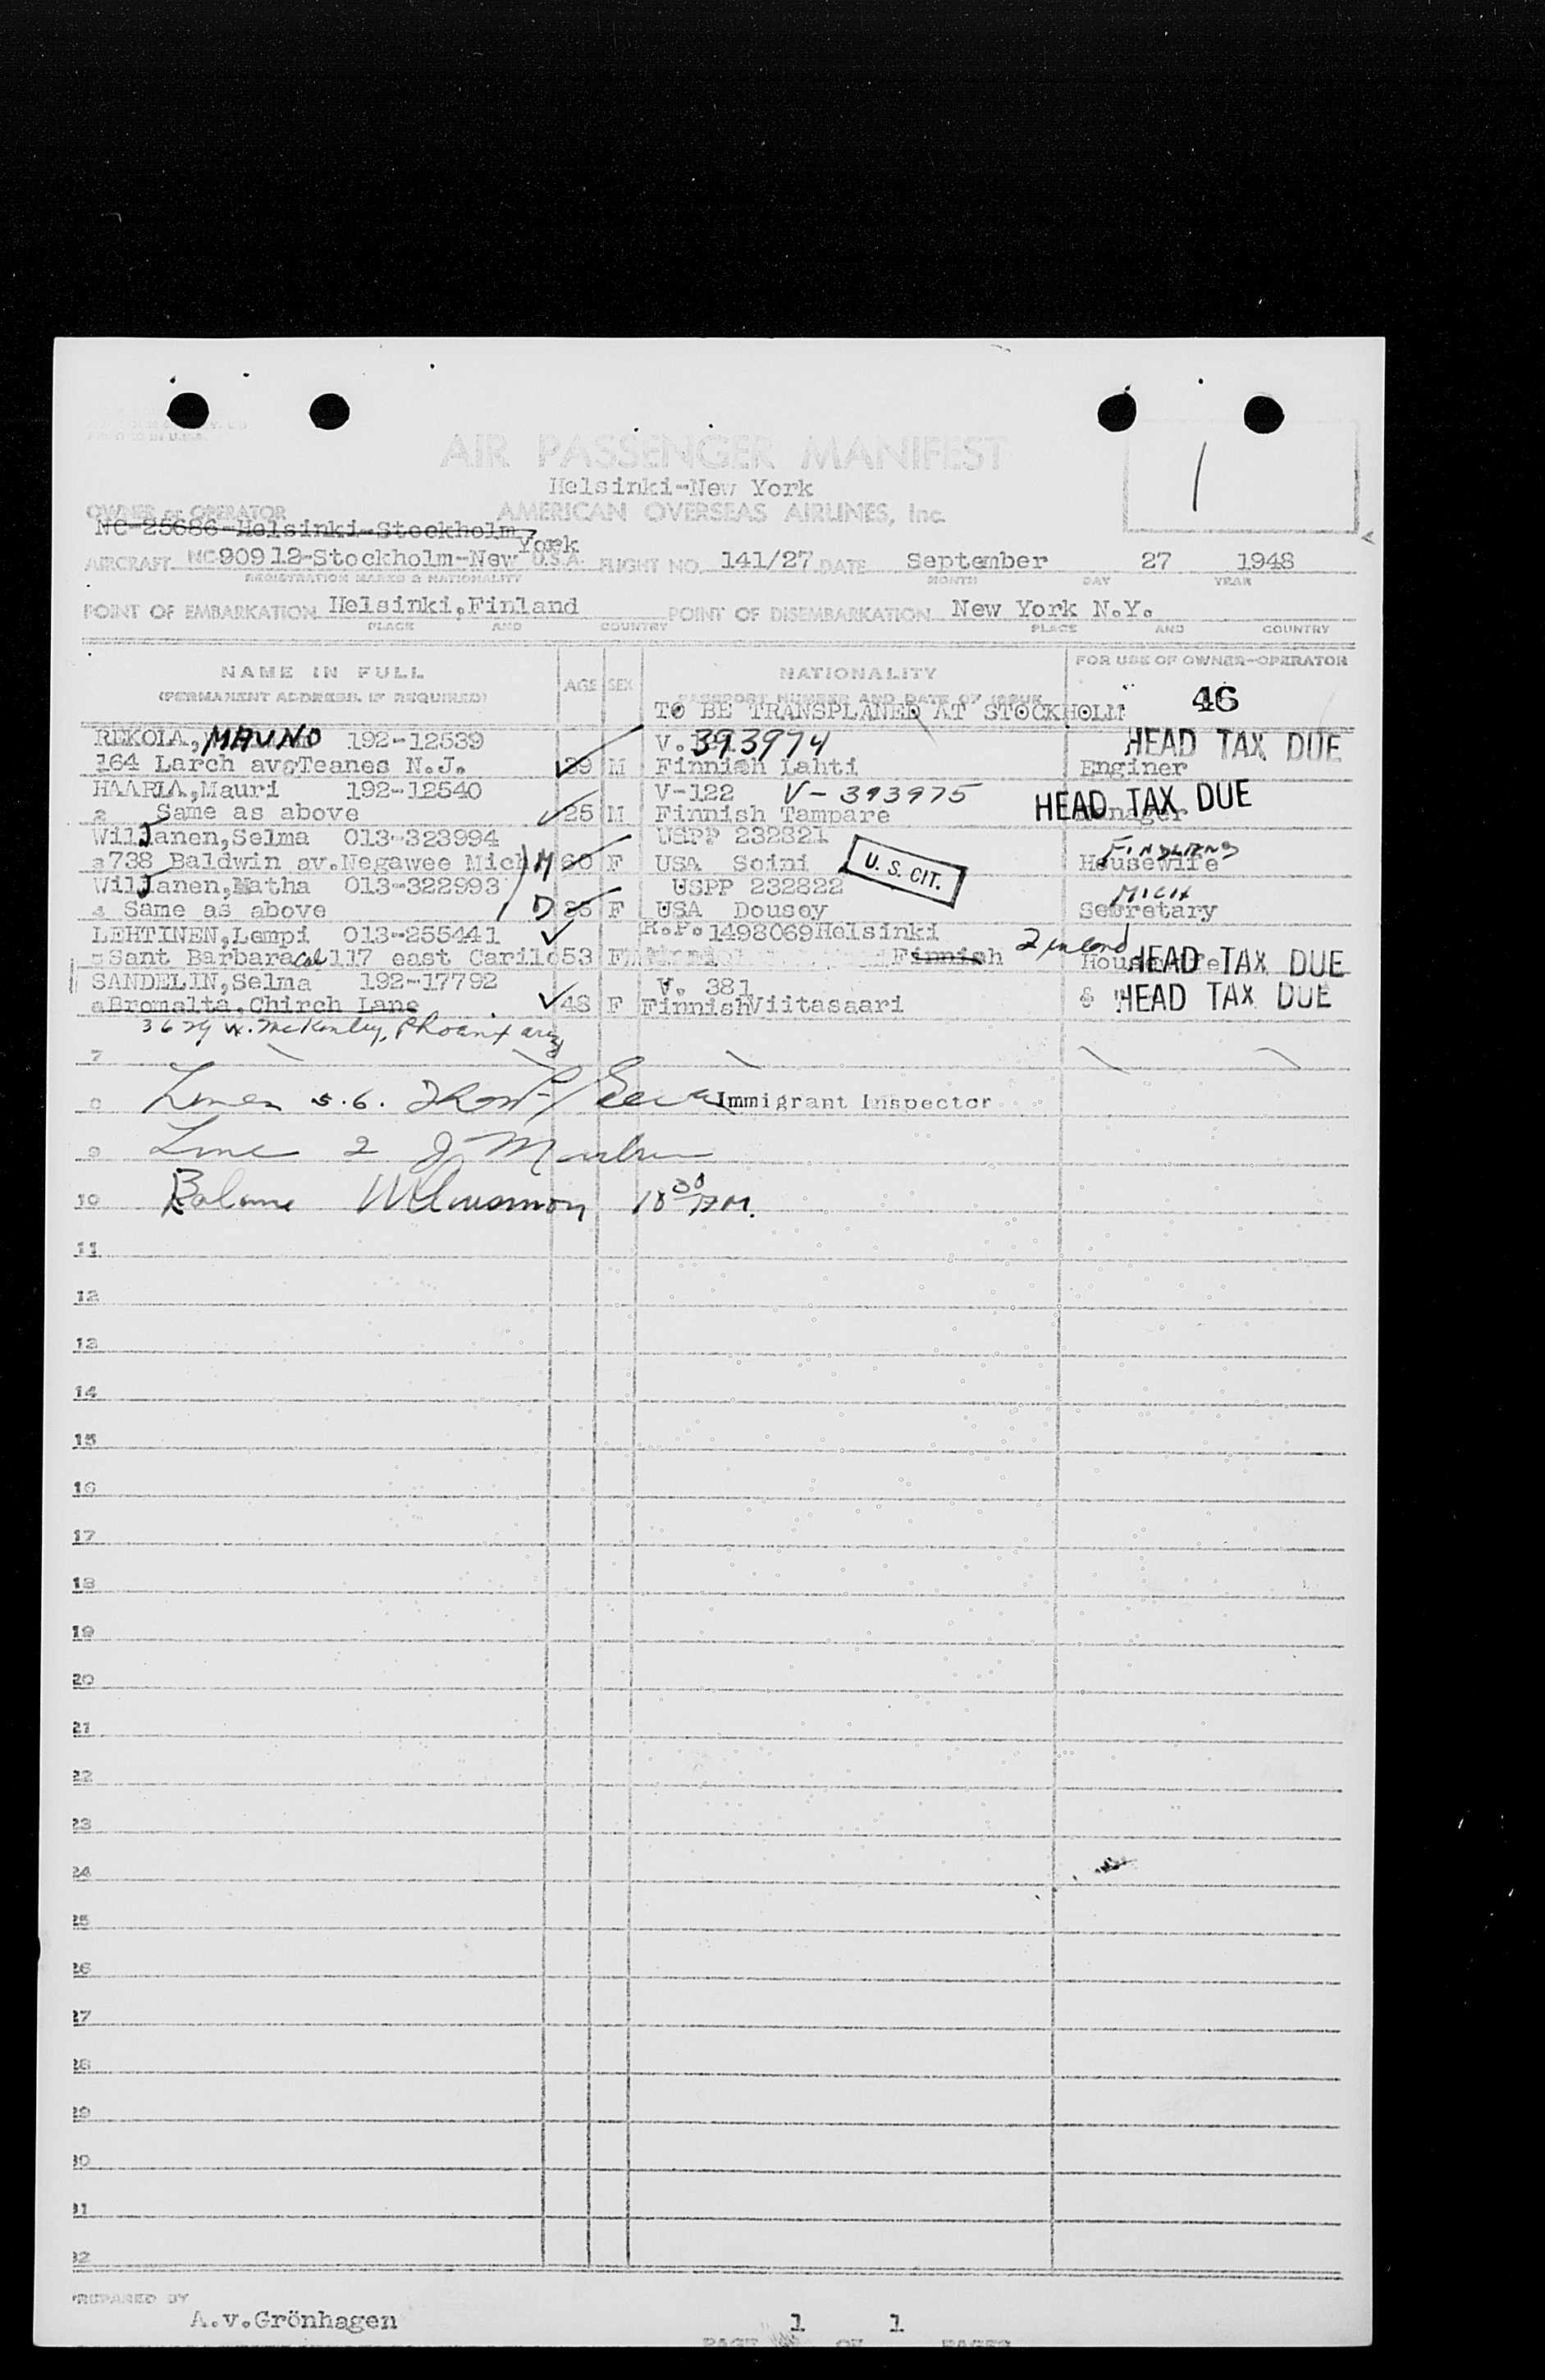 AIR PASSENGER MANIFEST
Helsinki-New York
OWNER or OPERATOR AMERICAN OVERSEAS AIRLINES, Inc.
NC-25686-Helsinki-Stockholm
York
AIRCRAFT NC 90912-Stockholm-New U.S.A. FLIGHT NO. 141/27 DATE September 27 1948
REGISTRATION MARKS & NATIONALITY MONTH DAY YEAR
POINT OF EMBARKATION Helsinki,Finland POINT OF DISEMBARKATION New York N.Y.
PLACE AND COUNTRY PLACE AND COUNTRY
NAME IN FULL AGE SEX NATIONALITY FOR USE OF OWNER-OPERATOR
(PERMANENT ADDRESS, IF REQUIRED) PASSPORT NUMBER AND DATE OF ISSUE
TO BE TRANSPLANED AT STOCKHOLM 46
REKOLA, MAUNO 192-12539 V. 393974 HEAD TAX DUE
164 Larch av. Teanes N.J. 39 M Finnish Lahti Enginer
HAARLA,Mauri 192-12540 V-122 V-393975 HEAD TAX DUE
2 Same as above 25 M Finnish Tampare Manager
Wiljanen,Selma 013-323994 USPP 232821
3 738 Baldwin av.Negawee Mich M 60 F USA Soini U. S. CIT. Housewife
Wiljanen,Matha 013-322993 USPP 232822 MICH
4 Same as above D 35 F USA Dousey Secretary
LEHTINEN,Lempi 013-255441 R.P. 1498069 Helsinki
5 Sant Barbara Cal 117 east Carilo 53 F Finnish HEAD TAX DUE
SANDELIN,Selma 192-17792 V. 381
6 Bromalta,Chirch Lane 48 F Finnish Viitasaari HEAD TAX DUE
W. McKinley, Phoenix
7
8 5.6. Immigrant Inspector
9 Line 2
10 Balance 10 30 PM.
11
12
13
14
15
16
17
18
19
20
21
22
23
24
25
26
27
28
29
30
31
32
PREPARED BY
A.v.Grönhagen
PAGE 1 OF 1 PAGES